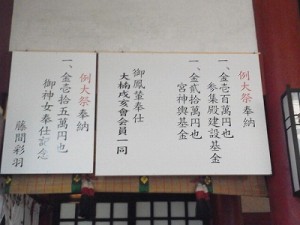 例大祭奉納
一、金壱百萬円也
参集殿建設基金
一、金貳拾萬円也
宮神輿基金
御鳳輦奉仕
大楠戌亥會会員一同
例大祭奉納
一、金壱拾五萬円也
御神女奉仕記念
藤間彩羽